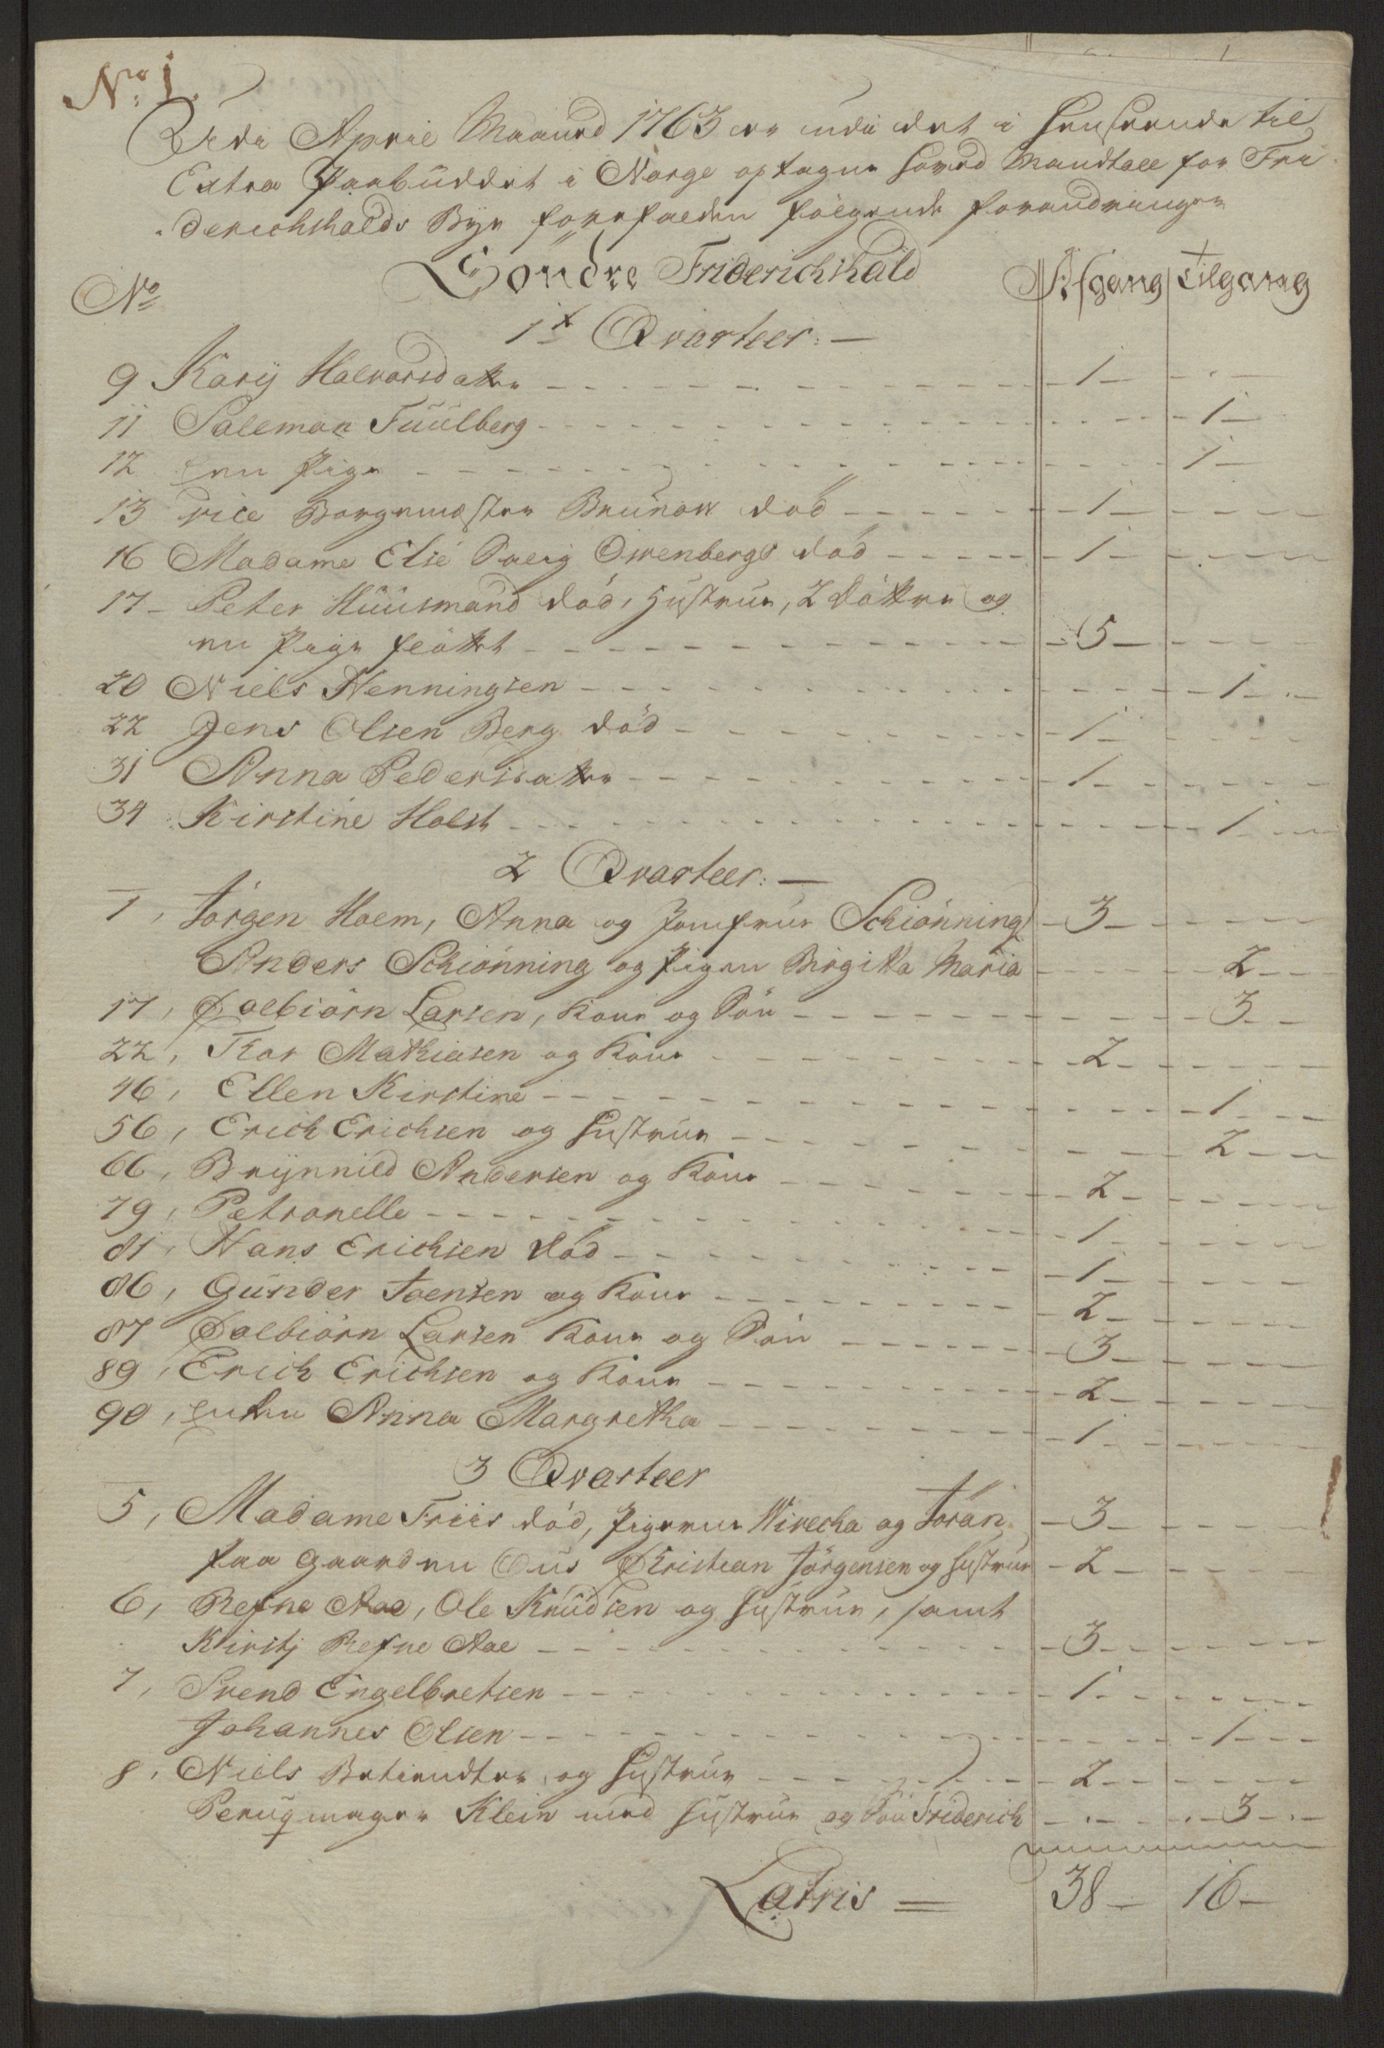 No 1.
Udi April Maaned 1763 er udi det i Henseende til
Extra Paabuddet i Norge optagne Hoved Mandtall for Fri-
derichshalds Bye forefalden følgende forandringer
Søndre Friderichshald
No Afgang Tilgang
1te Qvarteer: —
9 Karij Halvorsdatter - 1 -
11 Salemon Fuulberg - 1 -
12 en Pige - 1 -
13 vice Borgemester Brunow död - 1 -
16 Madame Else Salig Ovenbergs död - 1 -
17 - Peter Huusmand död, Hustrue, 2 döttre og
en Pige fløttet - 5 -
20 Niels Henningsen - 1 -
22 Jens Olsen Berg död - 1 -
31 Anna Pedersdatter - 1 -
34 Kirstine Holst - 1 -
2 Qvarteer: —
1, Jörgen Hoem, Anna og Jomfrue Schiönning - 3 -
Anders Schiönning og Pigen Birgitta Maria - 2 -
17, Dolbiörn Larsen, Kone og Sön - 3 -
22, Thor Mathiesen og Kone - 2 -
46, Ellen Kirstine - 1 -
56, Erich Erichsen og Hustrue - 2 -
66, Brynnild Andersen og Kone - 2 -
79, Petronelle - 1 -
81, Hans Erichsen död - 1 -
86, Gunder Joensen og Kone - 2 -
87 Dolbiörn Larsen Kone og Sön - 3 -
89, Erich Erichsen og Kone - 2 -
90, Enken Anna Margretha - 1 -
3 Qvarteer
5, Madame Friis död, Pigerne Wivecha og Jöran - 3 -
paa Gaarden Ous Christian Jörgensen og Hustrue - 2 -
6, Refne Aae, Ole Knudsen og Hustrue, samt
Kirstj Refne Aae - 3 -
7, Svend Engelbretsen - 1 -
Johannes Olsen - 1 -
8, Niels Betiendter og Hustrue - 2 -
Peruqmager Klein med Hustrue og Sön Friderich - 3 -
Latris = 38 - 16 -